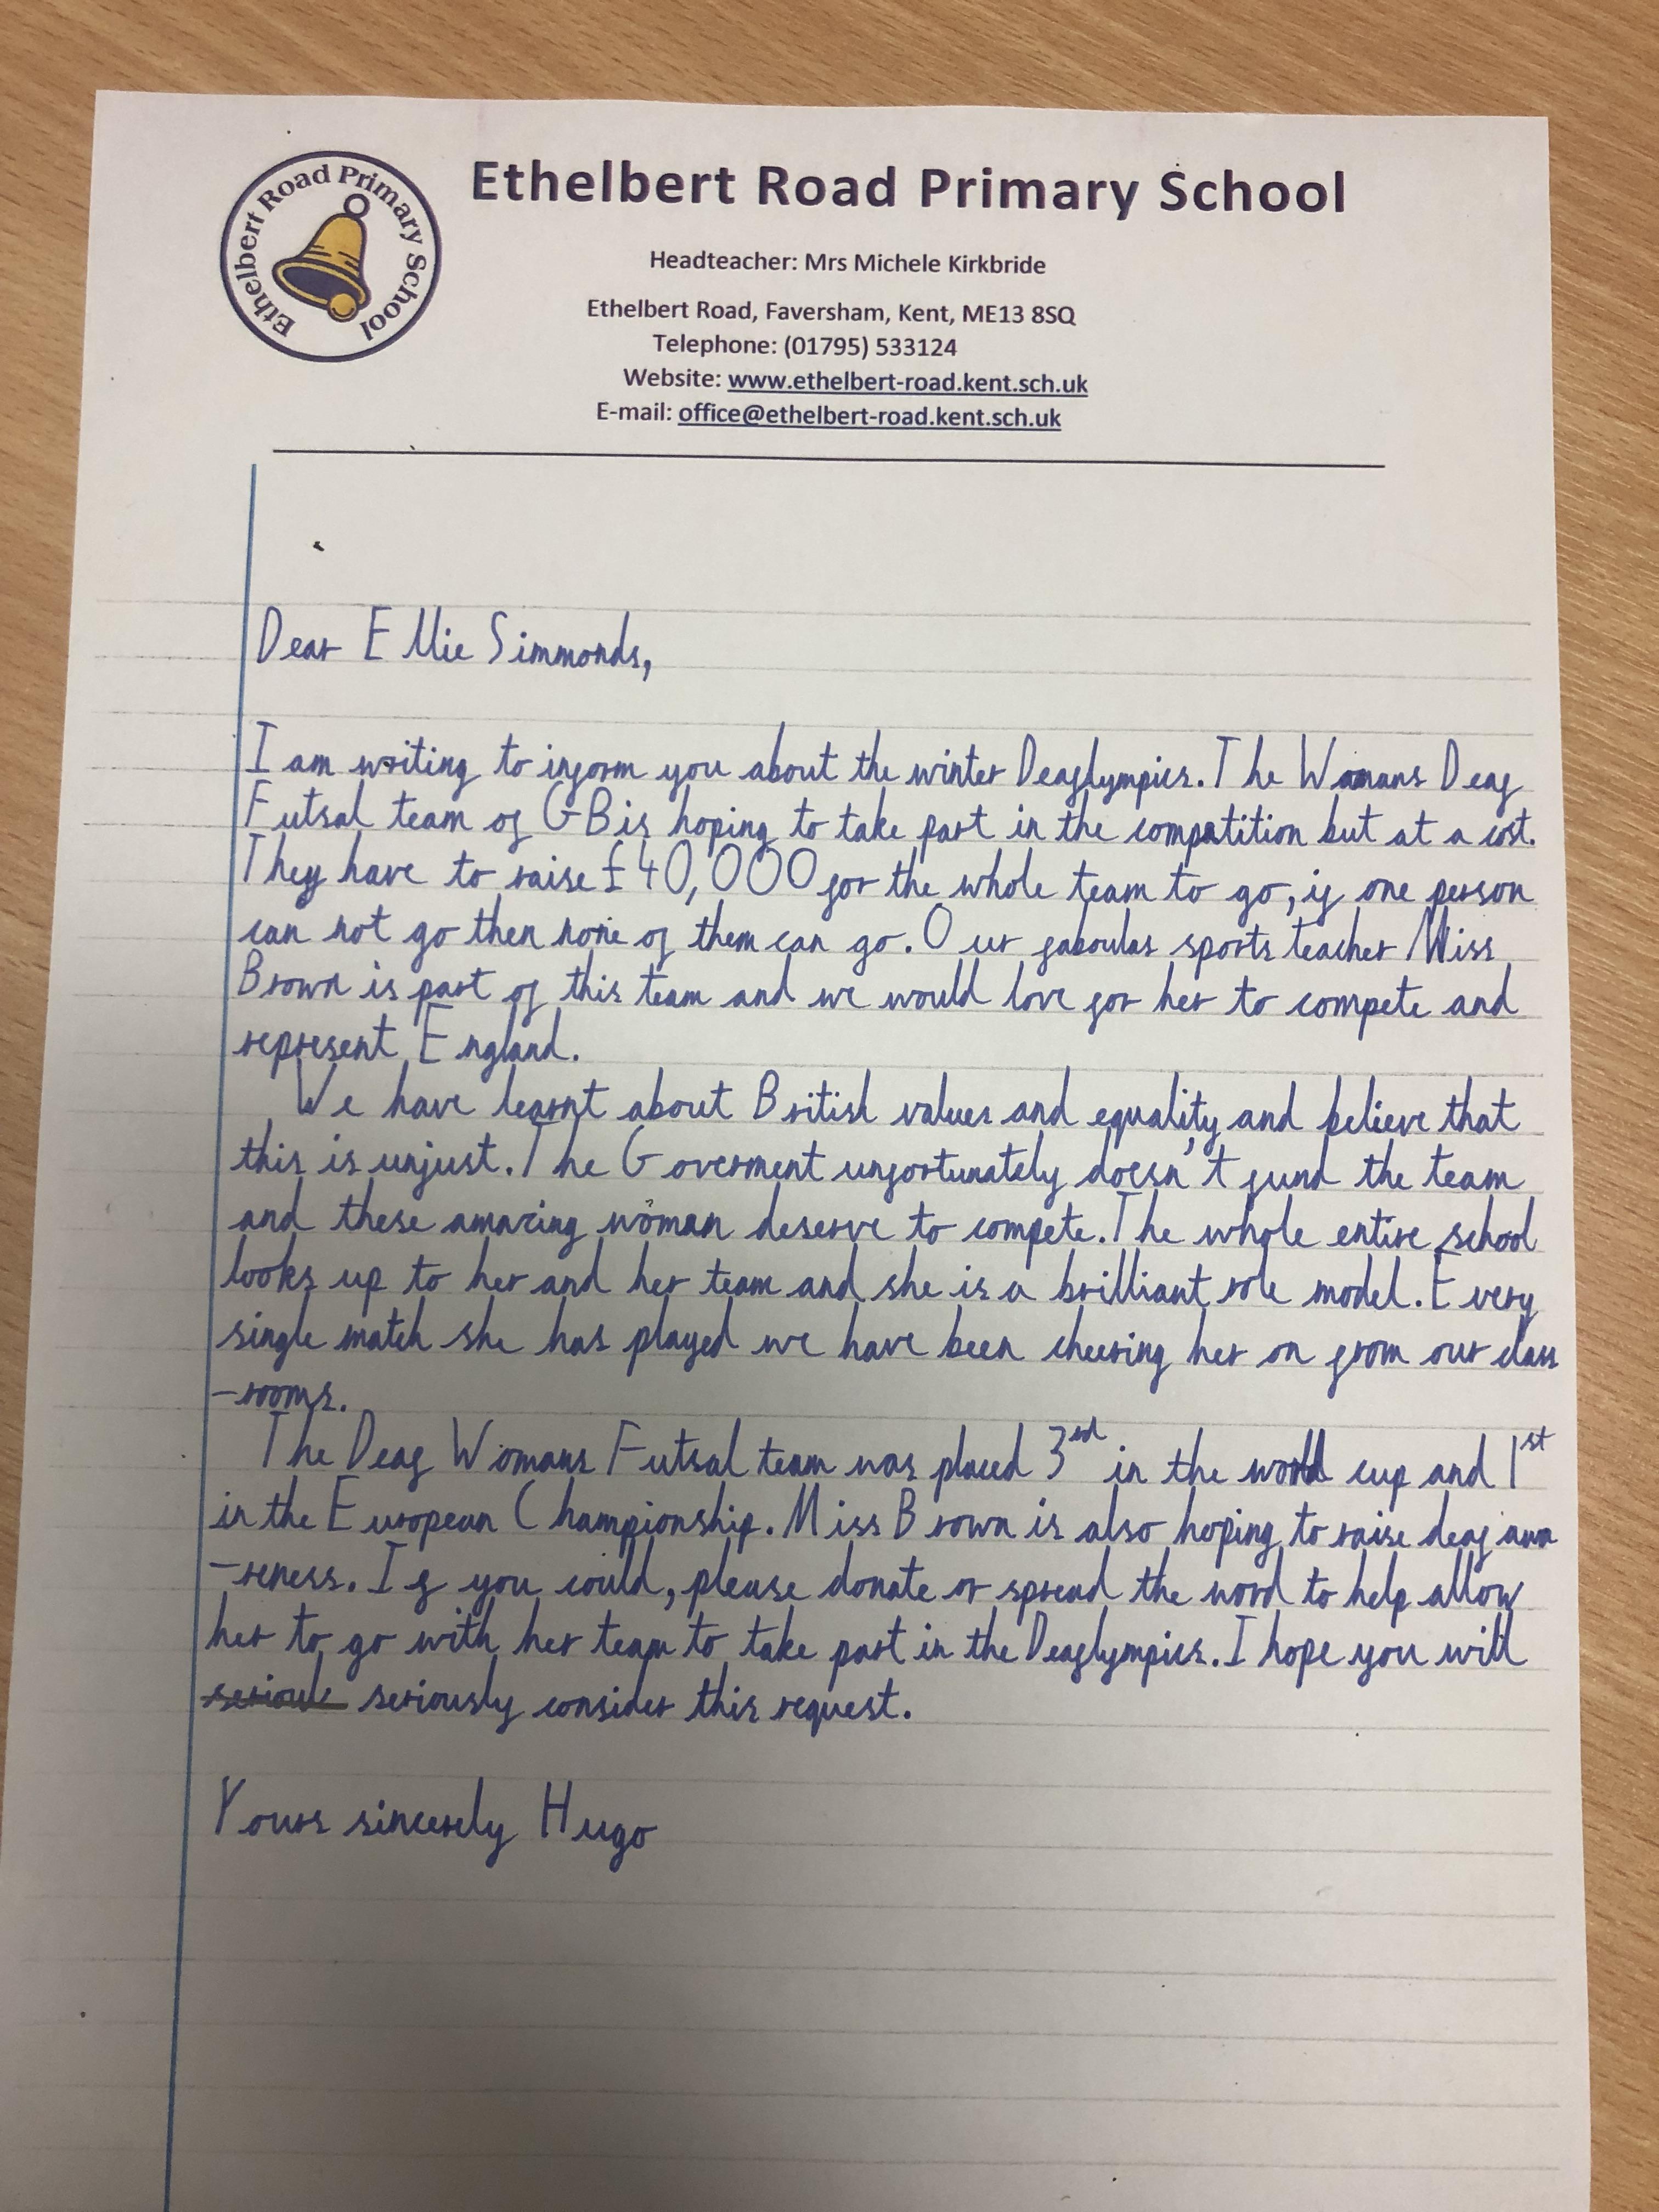 Ethelbert Road Primary School
Ethelbert Road Primary School
Headteacher: Mrs Michele Kirkbride
Ethelbert Road, Faversham, Kent, ME13 8SQ
Telephone: (01795) 533124
Website: www.ethelbert-road.kent.sch.uk
E-mail: office@ethelbert-road.kent.sch.uk
Dear Ellie Simmonds,
I am writing to inform you about the winter Deaflympics. The Womans Deaf
Futsal team of GB is hoping to take part in the compatition but at a cost.
They have to raise £40,000 for the whole team to go, if one person
can not go then none of them can go. Our faboulas sports teacher Miss
Brown is part of this team and we would love for her to compete and
represent England.
We have learnt about British values and equality, and believe that
this is unjust. The Goverment unfortunately doesn't fund the team
and these amazing woman deserve to compete. The whole entire school
looks up to her and her team and she is a brilliant role model. Every
single match she has played we have been cheering her on from our class
-rooms.
The Deaf Womans Futsal team was placed 3rd in the world cup and 1st
in the European Championship. Miss Brown is also hoping to raise deaf awa
-reness. If you could, please donate or spread the word to help allow
her to go with her team to take part in the Deaflympics. I hope you will
seriously consider this request.
Yours sincerely Hugo